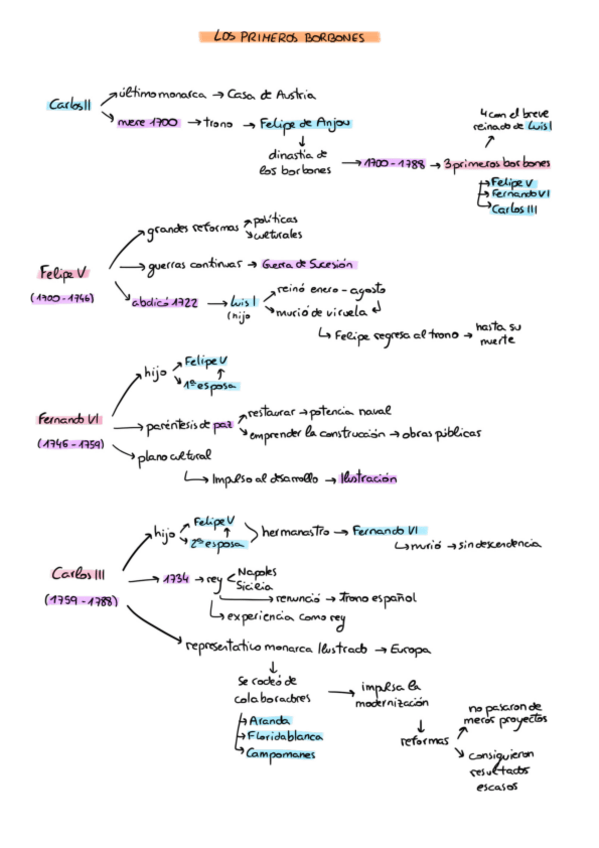 LOS PRIMEROS BORBONES
Carlos II
último monarca → Casa de Austria
muere 1700 → trono → Felipe de Anjou
dinastía de
los borbones
→ 1700 - 1788 → 3 primeros borbones
4 con el breve
reinado de Luis I
Felipe V
Fernando VI
Carlos III
Felipe V
(1700 - 1746)
grandes reformas
políticas
culturales
guerras continuas → Guerra de Sucesión
abdicó 1722 → Luis I
(hijo
reinó enero - agosto
murió de viruela
Felipe regresa al trono → hasta su
muerte
Fernando VI
(1746 - 1759)
hijo
Felipe V
1ª esposa
paréntesis de paz
restaurar → potencia naval
emprender la construcción → obras públicas
plano cultural
Impulso al desarrollo → Ilustración
Carlos III
(1759 - 1788)
hijo
Felipe V
2ª esposa
hermanastro → Fernando VI
murió → sin descendencia
1734 → rey
Napoles
Sicilia
renunció → trono español
experiencia como rey
representativo monarca Ilustrado → Europa
Se rodeó de
colaboradores
Aranda
Floridablanca
Campomanes
→ impulsa la
modernización
reformas
no pasaron de
meros proyectos
consiguieron
resultados
escasos